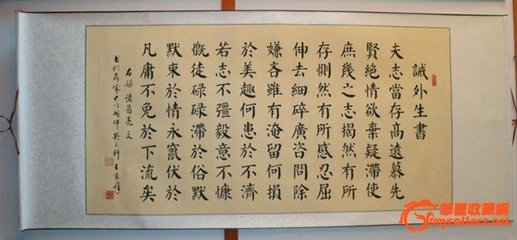 誡外生書
夫志當存高遠慕先
賢絕情欲棄疑滯使
庶幾之志揭然有所
存惻然有所感忍屈
伸去細碎廣咨問除
嫌吝雖有淹留何損
於美趣何患於不濟
若志不彊毅意不慷
慨徒碌碌滯於俗默
默束於情永竄伏於
凡庸不免於下流矣
右錄諸葛亮文
華夏收藏網
mycollect.net